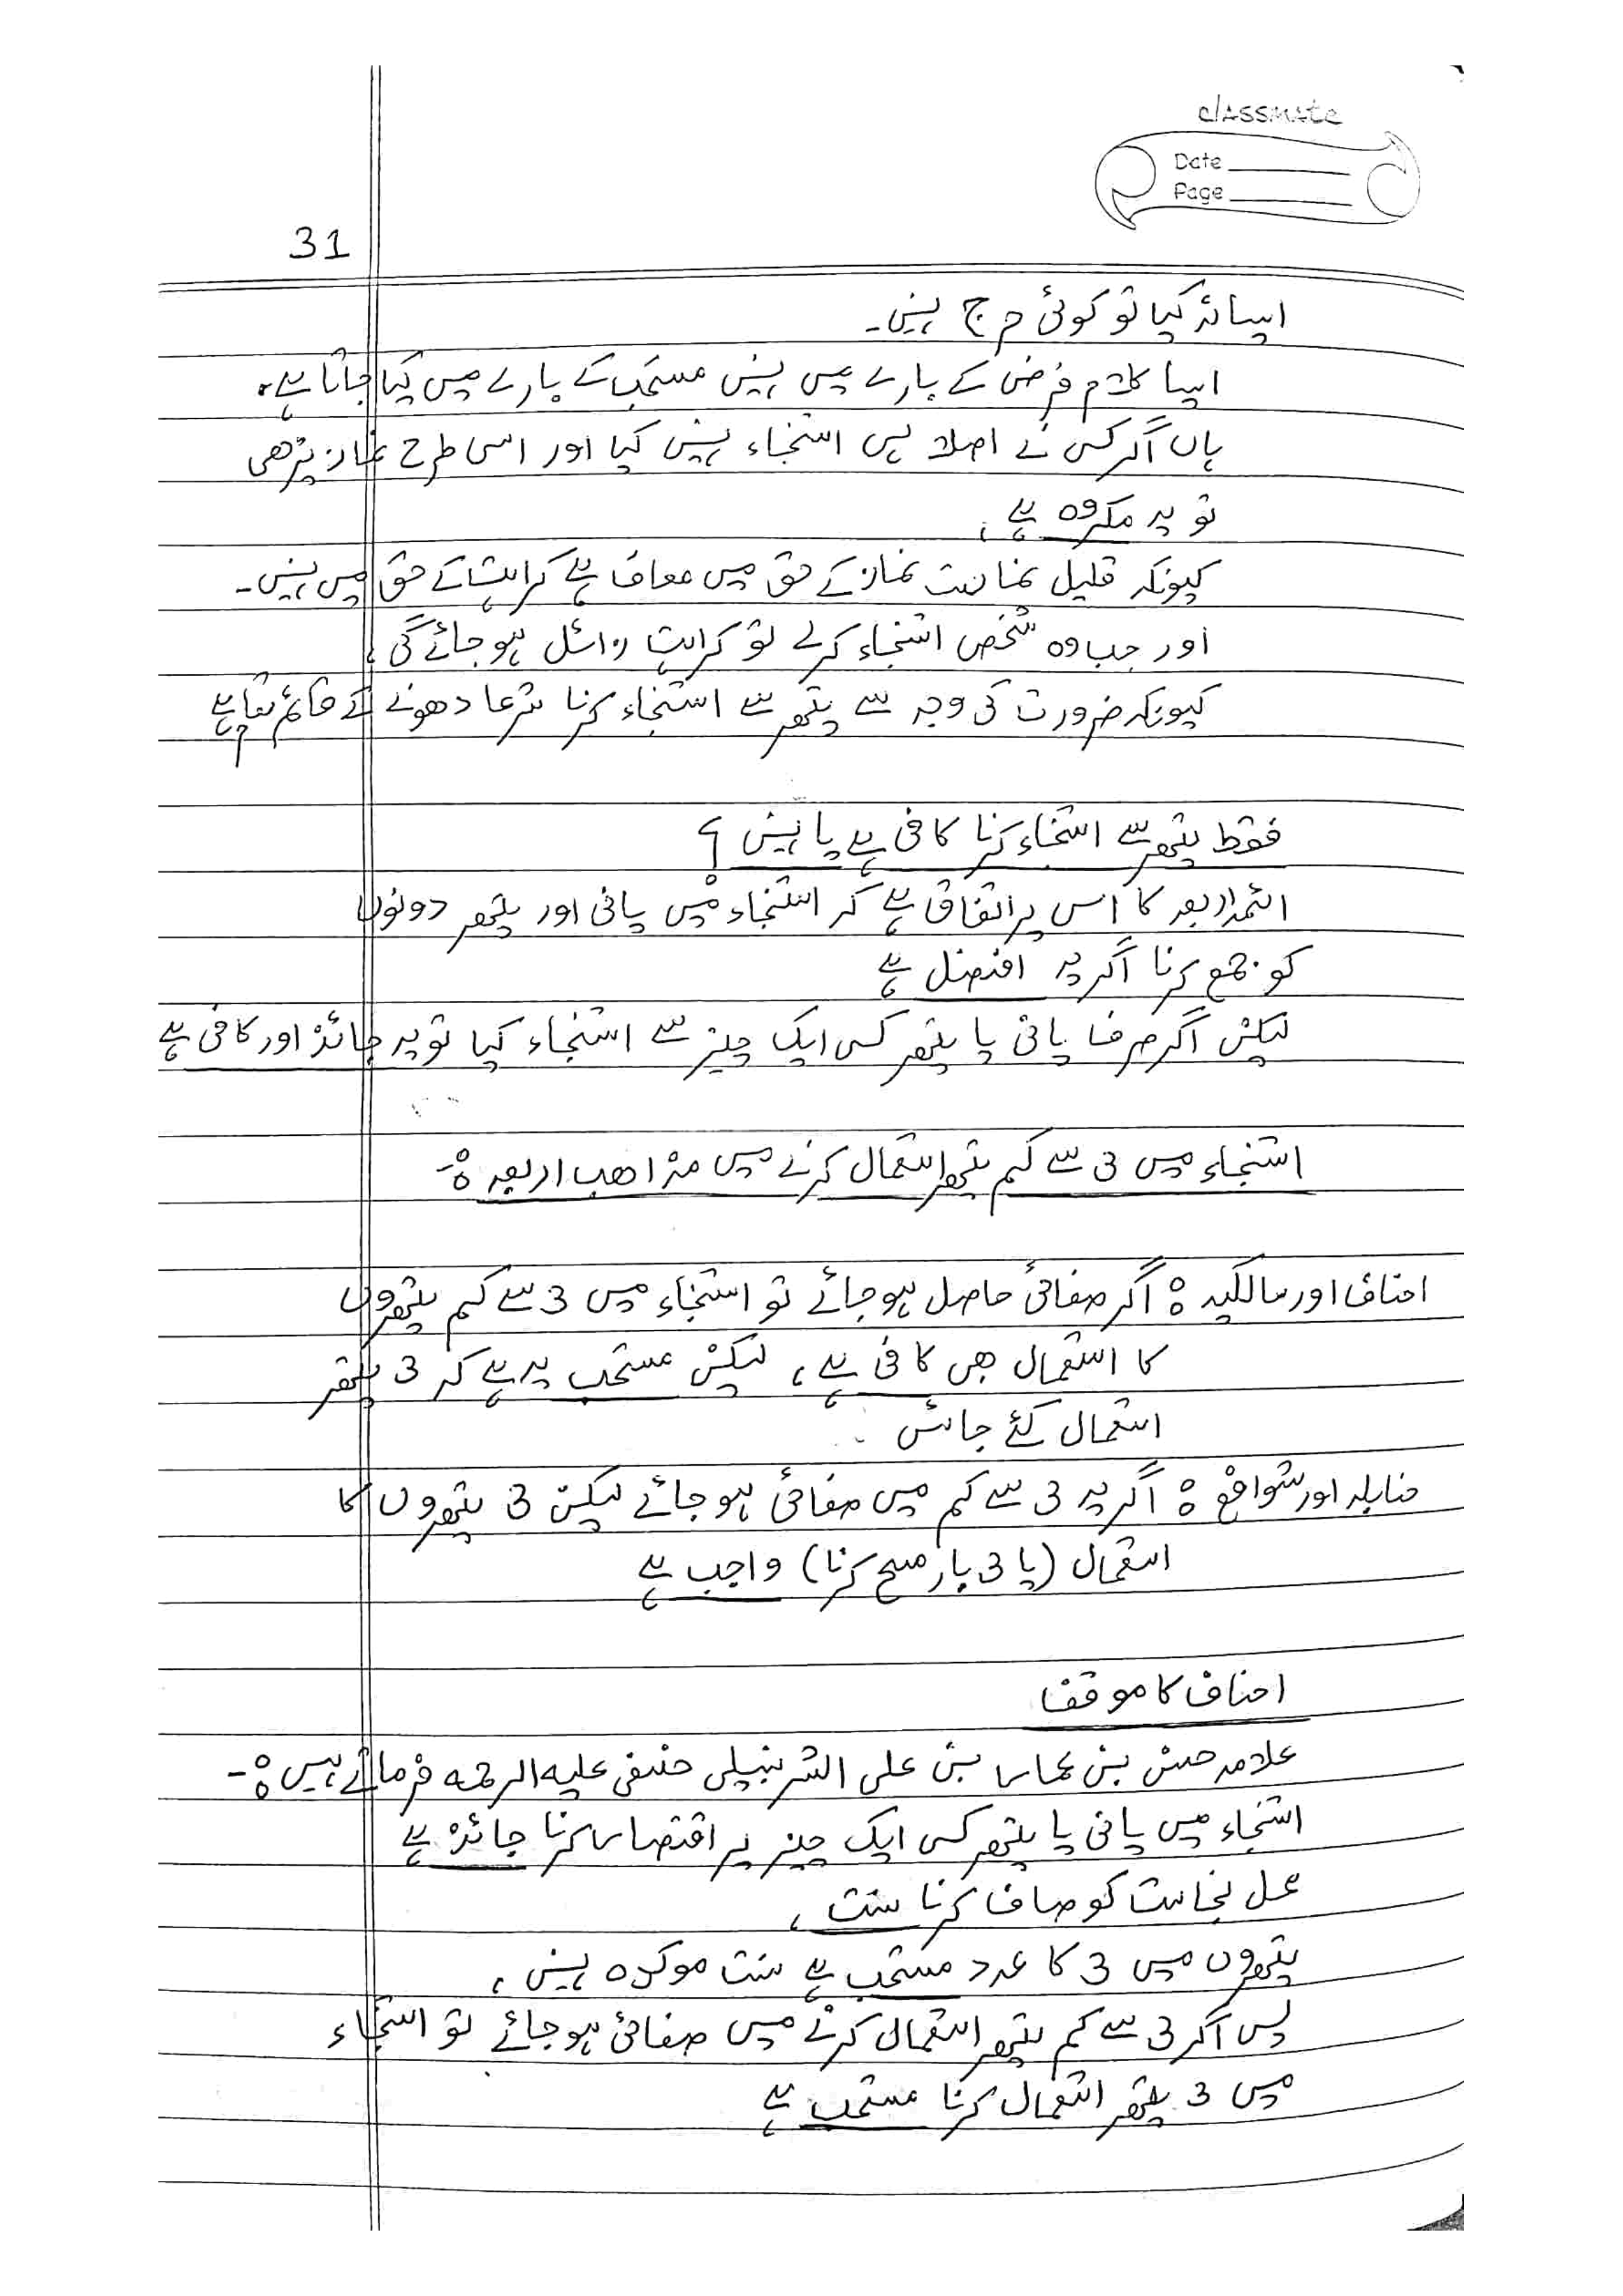 classmate
Date
Page
31
ایسا نہ کیا تو کوئی حرج نہیں۔
ایسا کلام فرض کے بارے میں نہیں مستحب کے بارے میں کیا جاتا ہے،
ہاں اگر کسی نے اصلا ہی استنجاء نہیں کیا اور اسی طرح نماز پڑھی
تو یہ مکروہ ہے،
کیونکہ قلیل نجاست نماز کے حق میں معاف ہے کراہت کے حق میں نہیں۔
اور جب وہ شخص استنجاء کرلے تو کراہت زائل ہو جائے گی،
کیونکہ ضرورت کی وجہ سے پتھر سے استنجاء کرنا شرعا دھونے کے قائم مقام ہے
فقط پتھر سے استنجاء کرنا کافی ہے یا نہیں ؟
ائمہ اربعہ کا اس پر اتفاق ہے کہ استنجاء میں پانی اور پتھر دونوں
کو جمع کرنا اگرچہ افضل ہے
لیکن اگر صرف پانی یا پتھر کسی ایک چیز سے استنجاء کیا تو یہ جائز اور کافی ہے
استنجاء میں 3 سے کم پتھر استعمال کرنے میں مذاھب اربعہ :-
احناف اور مالکیہ : اگر صفائی حاصل ہو جائے تو استنجاء میں 3 سے کم پتھروں
کا استعمال بھی کافی ہے، لیکن مستحب یہ ہے کہ 3 پتھر
استعمال کئے جائیں
حنابلہ اور شوافع : اگرچہ 3 سے کم میں صفائی ہو جائے لیکن 3 پتھروں کا
استعمال (یا 3 بار مسح کرنا) واجب ہے
احناف کا موقف
علامہ حسن بن عمار بن علی الشرنبلی حنفی علیہ الرحمہ فرماتے ہیں :-
استنجاء میں پانی یا پتھر کسی ایک چیز پر اقتصار کرنا جائز ہے
محل نجاست کو صاف کرنا سنت،
پتھروں میں 3 کا عدد مستحب ہے سنت موکدہ نہیں،
پس اگر 3 سے کم پتھر استعمال کرنے میں صفائی ہو جائے تو استنجاء
میں 3 پتھر استعمال کرنا مستحب ہے